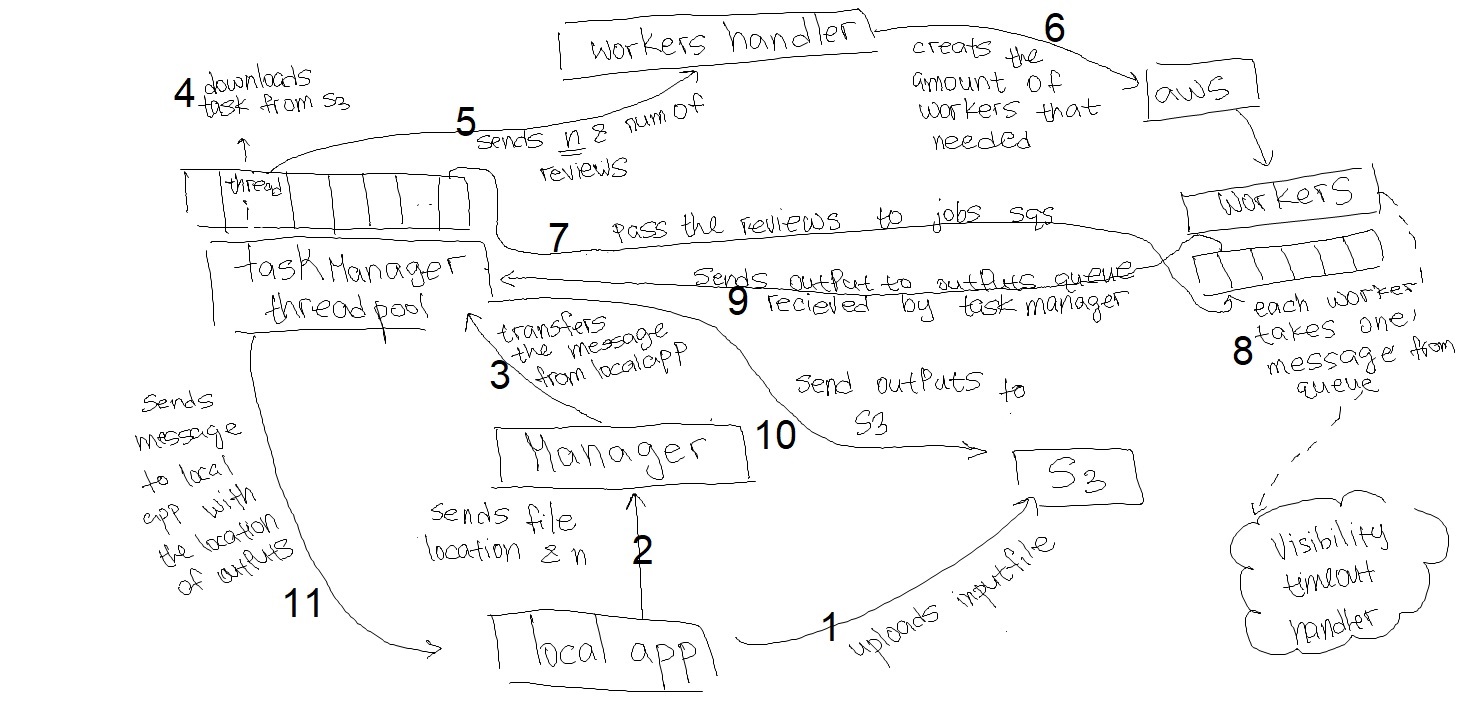 workers handler
6
creats the
amount of
workers that
needed
aws
4 downloads
task from S3
5
sends n & num of
reviews
thread
i
..
workers
7 pass the reviews to jobs sqs
taskManager
threadpool
Sends output to outputs queue
9 recieved by task manager
8 each worker
takes one
message from
queue
3 transfers
the message
from localapp
Send outputs to
S3
10
Manager
S3
Sends
message
to local
app with
the location
of outputs
11
Sends file
location & n
2
1
uploads inputfile
local app
Visibility
timeout
handler